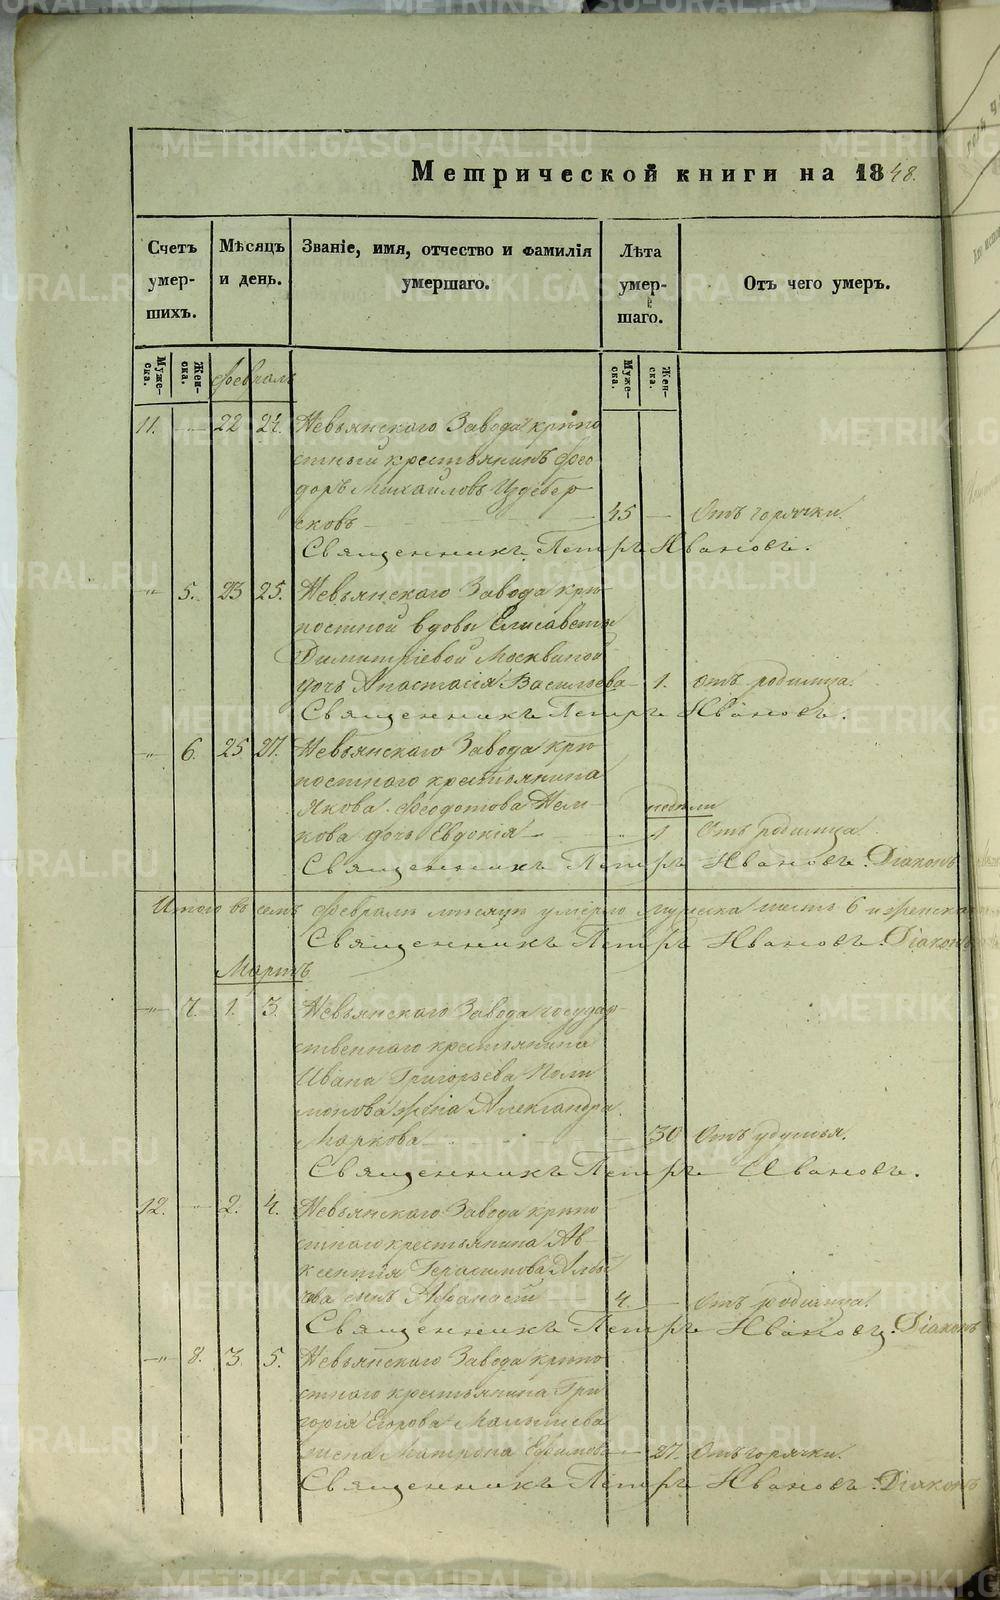 Метрической книги на 1848.
Счетъ умер- шихъ.
Мѣсяцъ и день.
Званіе, имя, отчество и фамилія умершаго.
Лѣта умер- шаго.
Отъ чего умеръ.
Муже- ска.
Жен- ска.
Февраль
Муже- ска.
Жен- ска.
11. — 22 24. Невьянскаго Завода крѣпо
стный крестьянинъ Фео
доръ Михайловъ Издебер
сковъ — 45 — Отъ горячки.
Священникъ Петръ Ивановъ.
— 5. 23 25. Невьянскаго Завода крѣ
постной вдовы Елисаветы
Димитріевой Москвиной
дочь Анастасія Васильева — 1. отъ родимца.
Священникъ Петръ Ивановъ.
— 6. 25 27. Невьянскаго Завода крѣ
постнаго крестьянина
Якова Феодотова Нем- недѣли
кова дочь Евдокія — 1 Отъ родимца
Священникъ Петръ Ивановъ. Діаконъ
Итого въ семъ Февралѣ мѣсяцѣ умерло мужеска шесть 6 и женска
Священникъ Петръ Ивановъ. Діаконъ
Мартъ
— 7. 1. 3. Невьянскаго Завода государ-
ственнаго крестьянина
Ивана Григорьева
жена Александра
Маркова — 30 Отъ удушья.
Священникъ Петръ Ивановъ.
12. — 2. 4. Невьянскаго Завода крѣпо
стнаго крестьянина Ав
ксентія Герасимова
сынъ Афанасій 4. — Отъ родимца.
Священникъ Петръ Ивановъ. Діаконъ
— 8. 3. 5. Невьянскаго Завода крѣпо
стнаго крестьянина Гри
горія Егорова Малышева
жена Матрона Ефимова — 27. Отъ горячки.
Священникъ Петръ Ивановъ. Діаконъ
METRIKI.GASO-URAL.RU